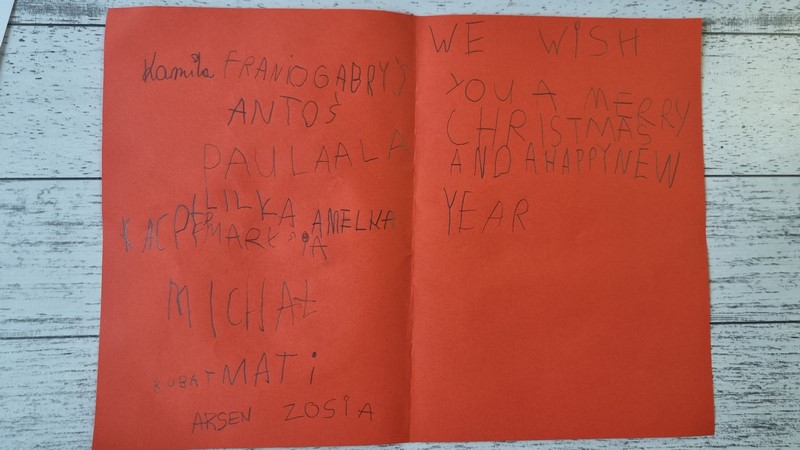 Kamila FRANIO GABRYŚ
ANTOŚ
PAULA ALA
LILKA AMELKA
MICHAŁ
MATi
ARSEN ZOSiA
WE WISH
YOU A MERRY
CHRISTMAS
AND A HAPPY NEW
YEAR